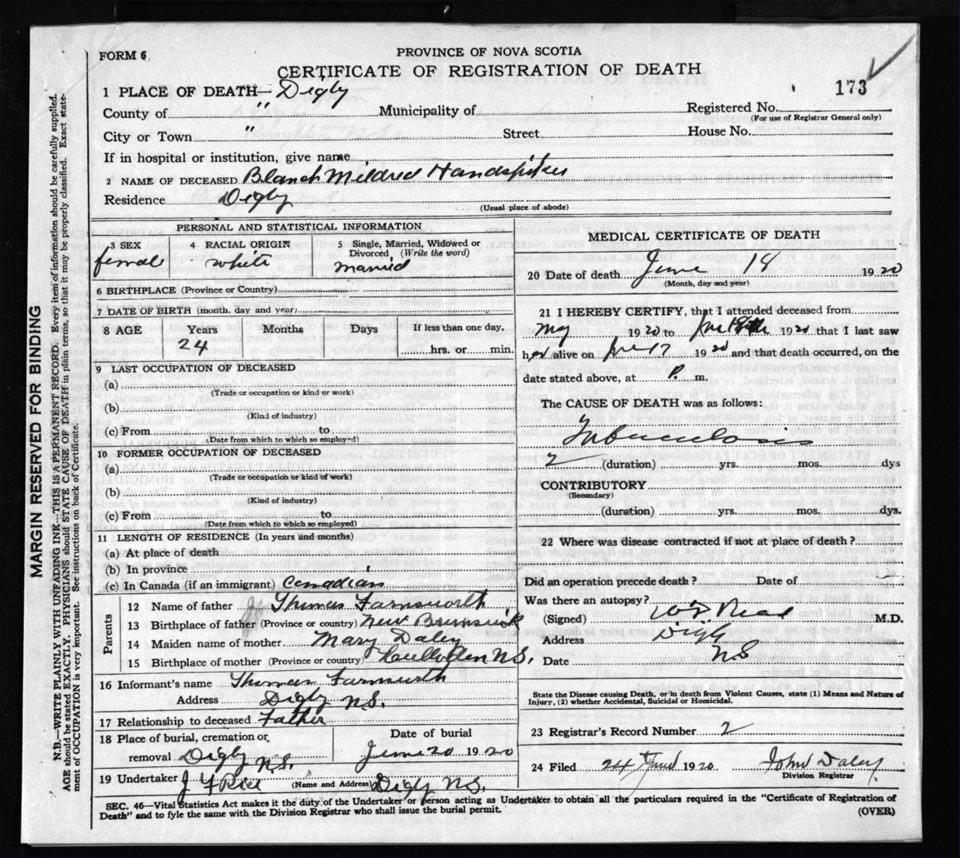 FORM 6
PROVINCE OF NOVA SCOTIA
CERTIFICATE OF REGISTRATION OF DEATH
173
1 PLACE OF DEATH— Digby
County of " Municipality of Registered No.
(For use of Registrar General only)
City or Town " Street House No.
If in hospital or institution, give name
2 NAME OF DECEASED Blanch Mildred Handspiker
Residence Digby
(Usual place of abode)
PERSONAL AND STATISTICAL INFORMATION
3 SEX 4 RACIAL ORIGIN 5 Single, Married, Widowed or
Divorced (Write the word)
female white married
6 BIRTHPLACE (Province or Country)
7 DATE OF BIRTH (month, day and year)
8 AGE Years Months Days If less than one day,
24
hrs. or min.
9 LAST OCCUPATION OF DECEASED
(a)
(Trade or occupation or kind or work)
(b)
(Kind of industry)
(c) From to
(Date from which to which so employed)
10 FORMER OCCUPATION OF DECEASED
(a)
(Trade or occupation or kind of work)
(b)
(Kind of industry)
(c) From to
(Date from which to which so employed)
11 LENGTH OF RESIDENCE (In years and months)
(a) At place of death
(b) In province
(c) In Canada (if an immigrant) Canadian
Parents
12 Name of father Thomas Farnsworth
13 Birthplace of father (Province or country) New Brunswick
14 Maiden name of mother Mary Daley
15 Birthplace of mother (Province or country) N.S.
16 Informant's name Thomas Farnsworth
Address Digby N.S.
17 Relationship to deceased Father
18 Place of burial, cremation or Date of burial
removal Digby N.S. June 20 1920
19 Undertaker J F Rice (Name and Address) Digby N.S.
MEDICAL CERTIFICATE OF DEATH
20 Date of death June 18 1920
(Month, day and year)
21 I HEREBY CERTIFY, that I attended deceased from
1920 to June 18th 1920 that I last saw
her alive on June 17 1920 and that death occurred, on the
date stated above, at P. m.
The CAUSE OF DEATH was as follows:
Tuberculosis
2 (duration) yrs. mos. dys
CONTRIBUTORY
(Secondary)
(duration) yrs. mos. dys.
22 Where was disease contracted if not at place of death?
Did an operation precede death? Date of
Was there an autopsy?
(Signed) M.D.
Address Digby
Date N S
State the Disease causing Death, or in death from Violent Causes, state (1) Means and Nature of
Injury, (2) whether Accidental, Suicidal or Homicidal.
23 Registrar's Record Number 2
24 Filed 24 June 1920 John Daley
Division Registrar
SEC. 46—Vital Statistics Act makes it the duty of the Undertaker or person acting as Undertaker to obtain all the particulars required in the "Certificate of Registration of
Death" and to fyle the same with the Division Registrar who shall issue the burial permit. (OVER)
MARGIN RESERVED FOR BINDING
N.B.—WRITE PLAINLY WITH UNFADING INK—THIS IS A PERMANENT RECORD. Every item of information should be carefully supplied.
AGE should be stated EXACTLY. PHYSICIANS should STATE CAUSE OF DEATH in plain terms, so that it may be properly classified. Exact state-
ment of OCCUPATION is very important. See instructions on back of Certificate.